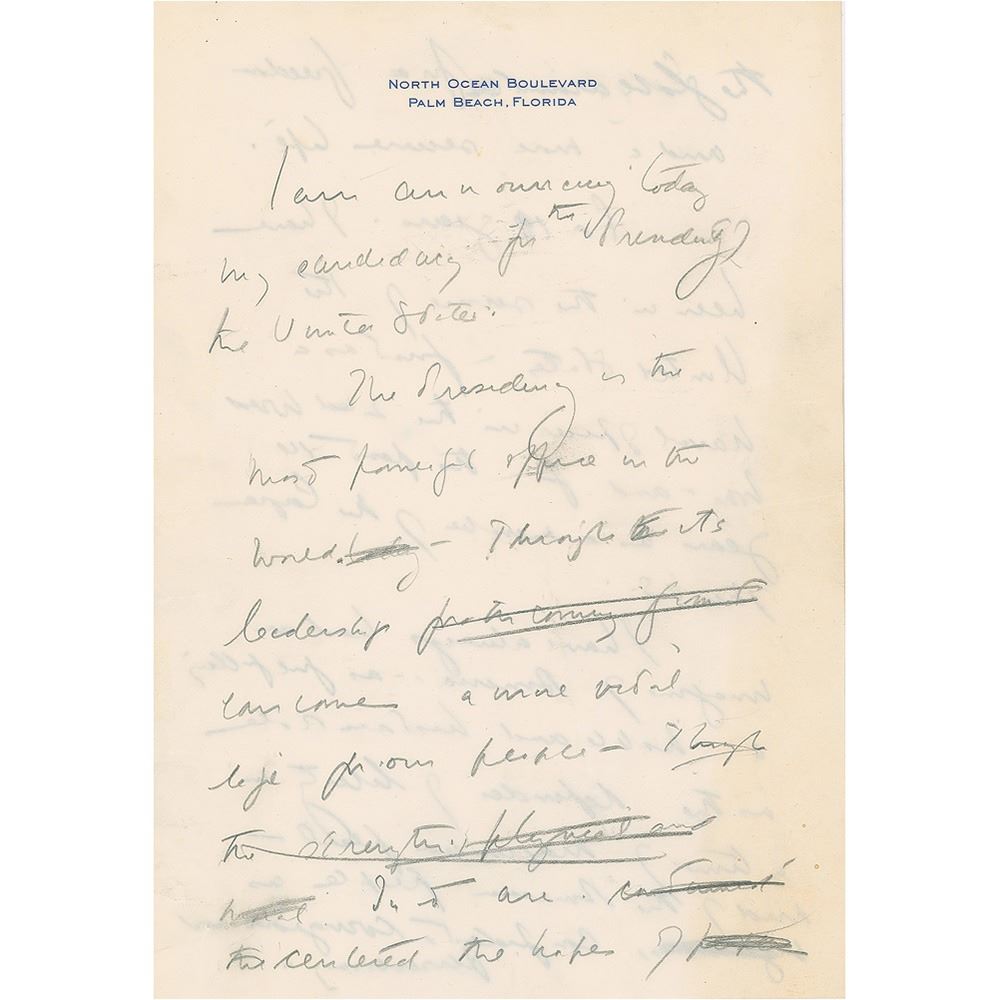 NORTH OCEAN BOULEVARD
PALM BEACH, FLORIDA
I am announcing today
my candidacy for the Presidency of
the United States.
The Presidency is the
most powerful office in the
world. — Through its
leadership forthcoming from it
can come a more vital
life for our people — Through
the strength physical and
moral. In it are contained
the centered the hopes of